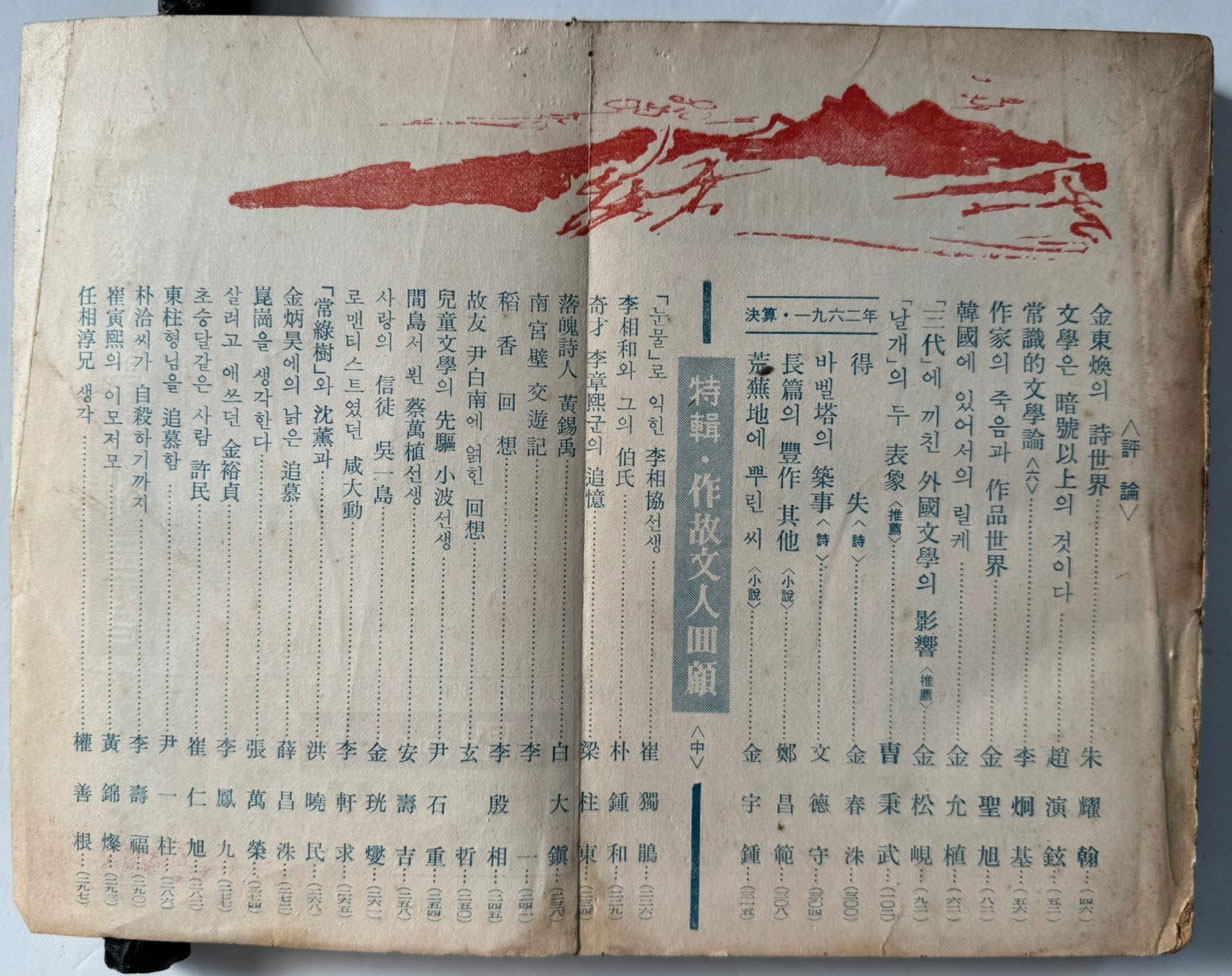 〈評論〉
金東煥의 詩世界……朱耀翰…(四六)
文學은 暗號以上의 것이다……趙演鉉…(五二)
常識的文學論〈六〉……李炯基…(五六)
作家의 죽음과 作品世界……金聖旭…(八二)
韓國에 있어서의 릴케……金允植…(六二)
「三代」에 끼친 外國文學의 影響〈推薦〉……金松峴…(九二)
「날개」의 두 表象〈推薦〉……曺秉武…(一〇二)
決算・一九六二年
得失〈詩〉……金春洙…(三〇〇)
바벨塔의 築事〈詩〉……文德守…(三〇四)
長篇의 豐作 其他〈小說〉……鄭昌範…(三〇八)
荒蕪地에 뿌린 씨〈小說〉……金宇鍾…(三一五)
特輯・作故文人回顧〈中〉
「눈물」로 익힌 李相協선생……崔獨鵑…(二二六)
李相和와 그의 伯氏……朴鍾和…(二二九)
奇才 李章熙군의 追憶……梁柱東…(二三四)
落魄詩人 黃錫禹……白大鎭…(二三八)
南宮壁 交遊記……李一…(二四一)
稻香回想……李殷相…(二四五)
故友 尹白南에 얽힌 回想……玄哲…(二五〇)
兒童文學의 先驅 小波선생……尹石重…(二五四)
間島서 뵌 蔡萬植선생……安壽吉…(二五八)
사랑의 信徒 吳一島……金珖燮…(二六一)
로맨티스트였던 咸大勳……李軒求…(二六五)
「常綠樹」와 沈薰과……洪曉民…(二六八)
金炳昊에의 낡은 追慕……薛昌洙…(二七二)
崑崗을 생각한다……張萬榮…(二七四)
살려고 애쓰던 金裕貞……李鳳九…(二七七)
초승달같은 사람 許民……崔仁旭…(二八二)
東柱형님을 追慕함……尹一柱…(二八六)
朴洽씨가 自殺하기까지……李壽福…(二九〇)
崔寅熙의 이모저모……黃錦燦…(二九三)
任相淳兄 생각……權善根…(二九七)